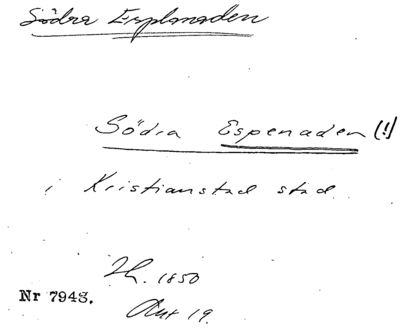 Södra Esplanaden
Södra Espenaden (!)
i Kristianstad stad.
1850
Nr 7943.
19.